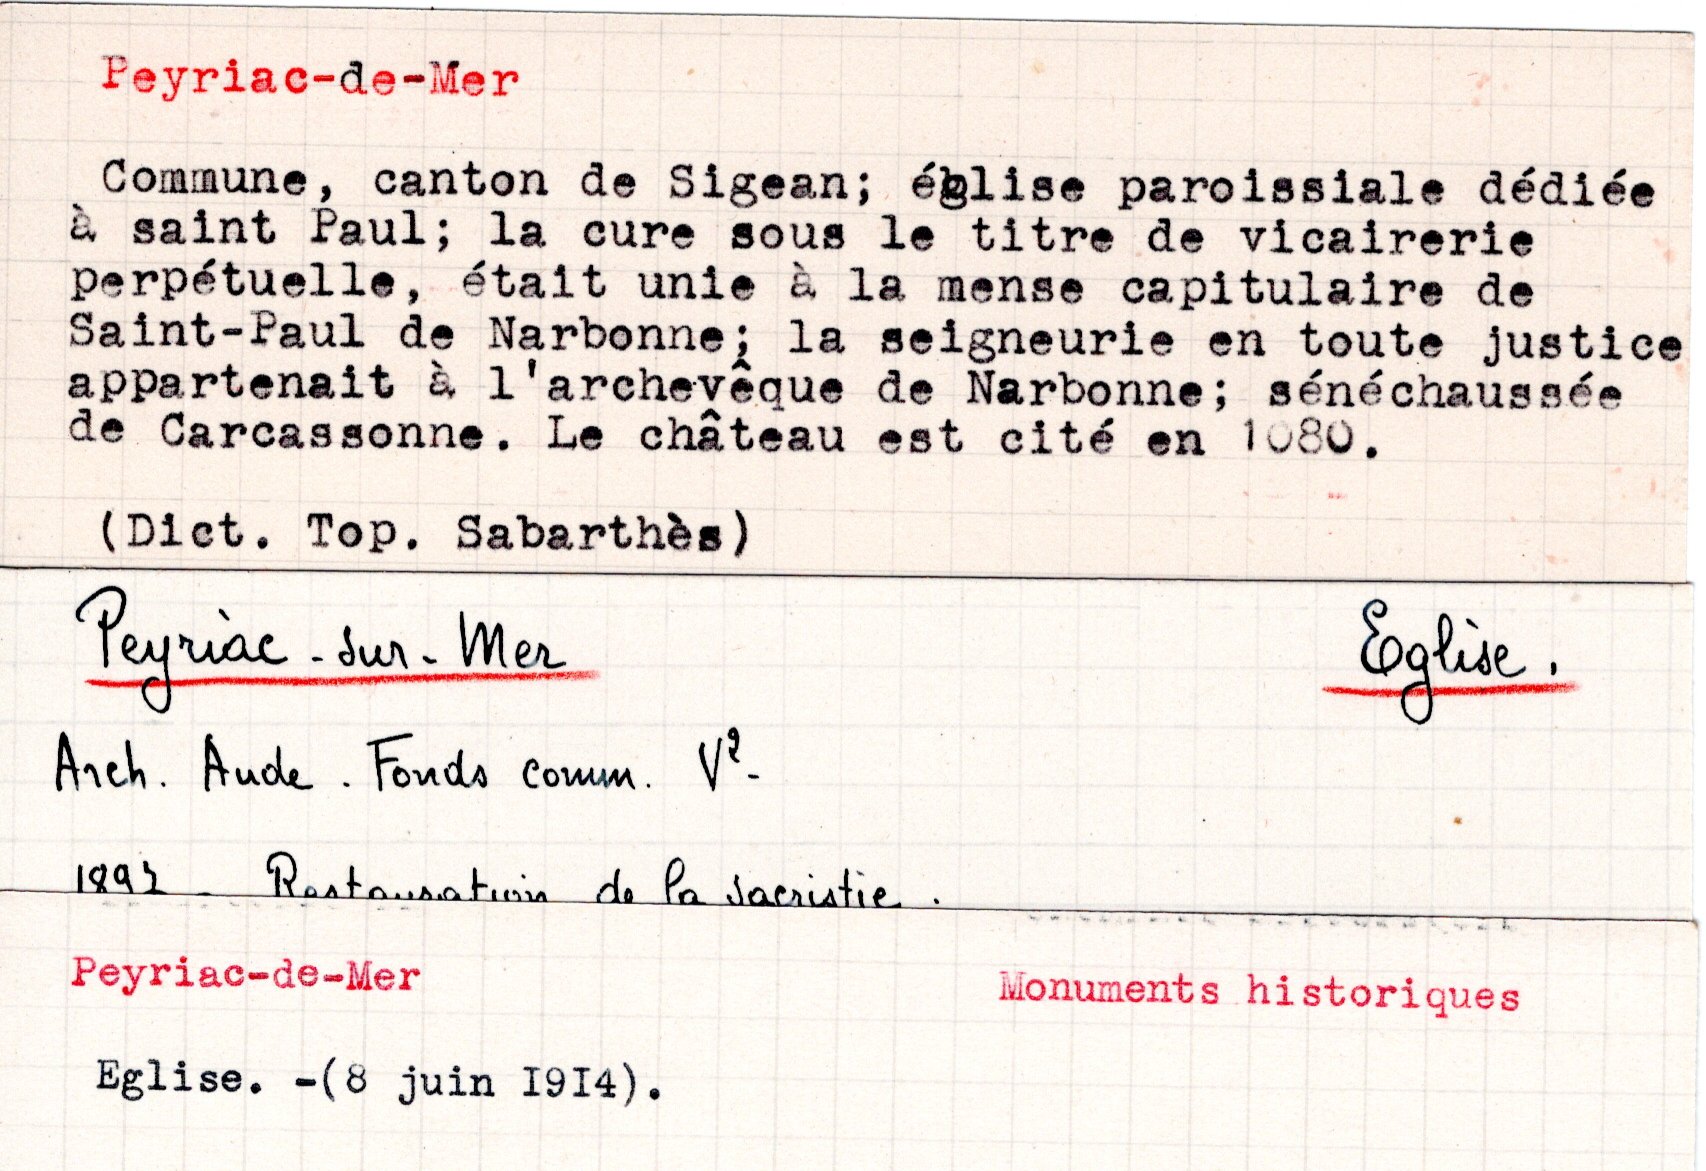 Peyriac-de-Mer
Commune, canton de Sigean; église paroissiale dédiée
à saint Paul; la cure sous le titre de vicairerie
perpétuelle, était unie à la mense capitulaire de
Saint-Paul de Narbonne; la seigneurie en toute justice
appartenait à l'archevêque de Narbonne; sénéchaussée
de Carcassonne. Le château est cité en 1080.
(Dict. Top. Sabarthès)
Peyriac-sur-Mer Eglise.
Arch. Aude. Fonds comm. V²-
- Restauration de la sacristie.
Peyriac-de-Mer Monuments historiques
Eglise. -(8 juin I9I4).